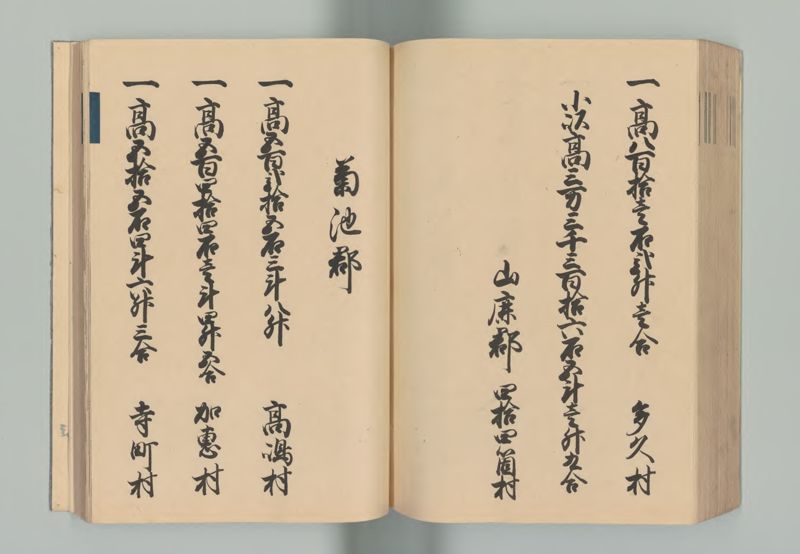 一高八百拾壱石弐升壱合 多久村
小以高三万三千三百拾六石五斗壱升九合
山鹿郡 四拾四箇村
菊池郡
一高五百弐拾五石三斗八升 高嶋村
一高五百四拾四石壱斗四升五合 加恵村
一高五拾五石四斗六升三合 寺町村